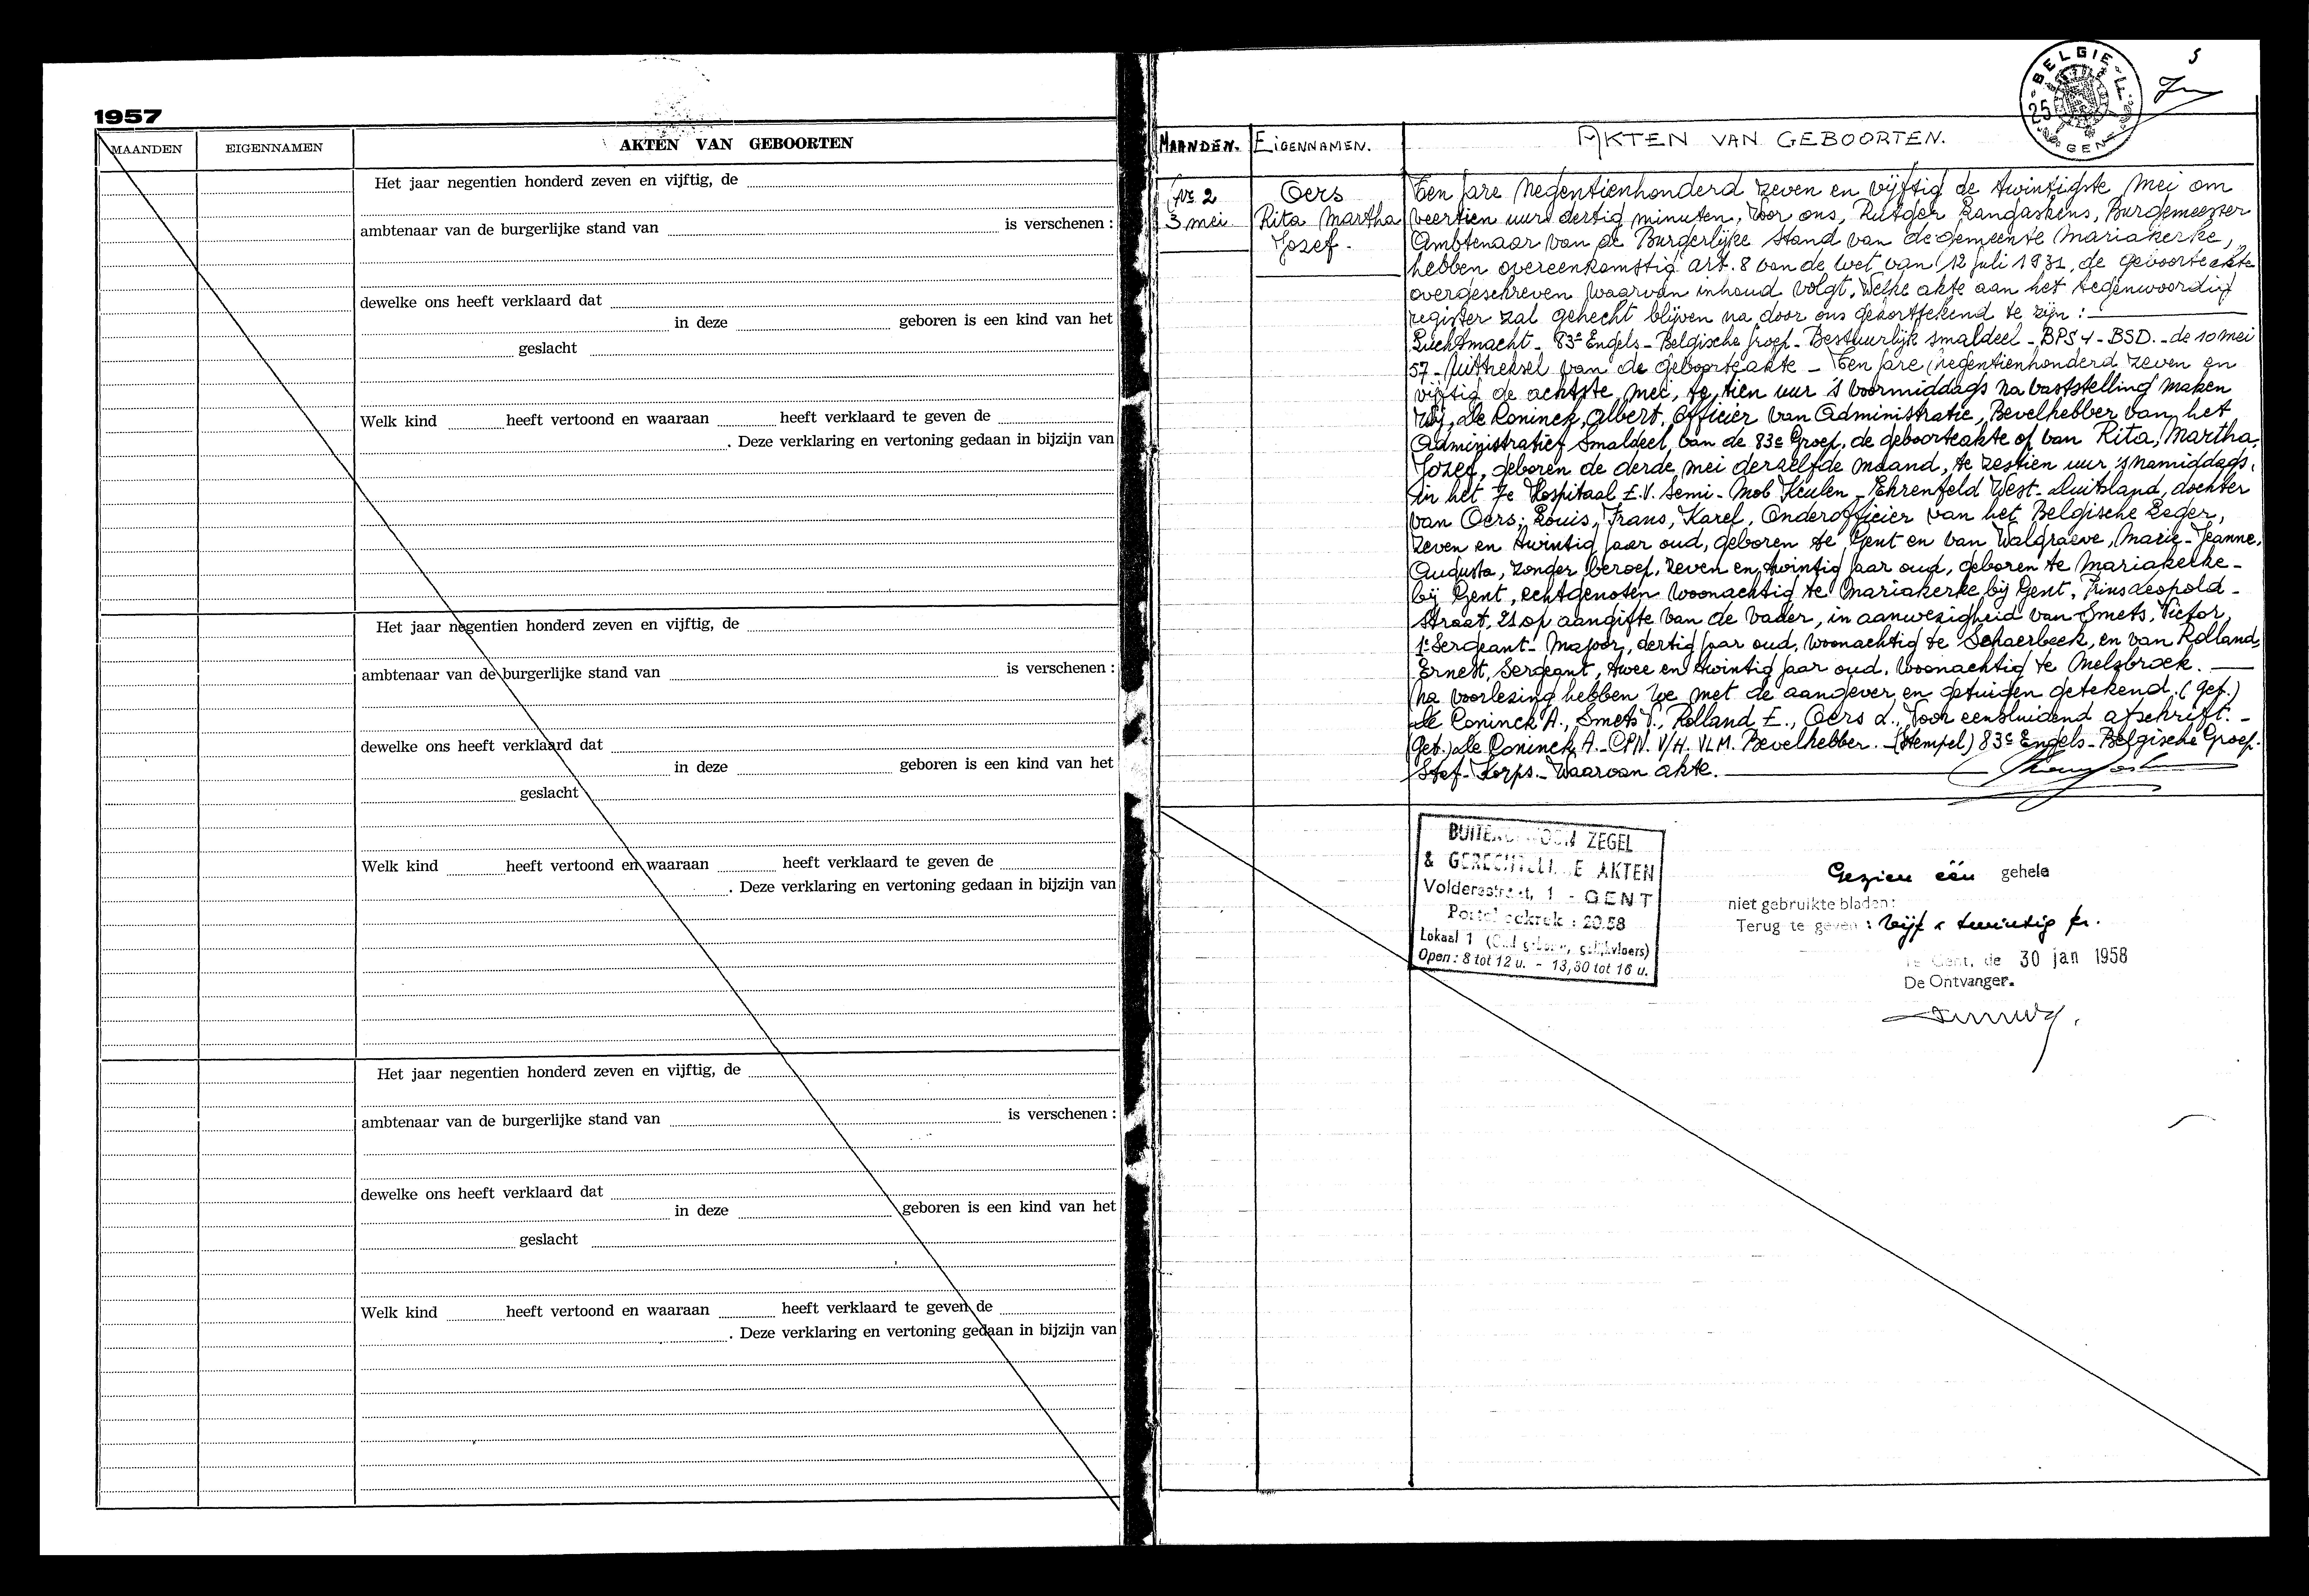 1957
MAANDEN
EIGENNAMEN
AKTEN VAN GEBOORTEN
Het jaar negentien honderd zeven en vijftig, de
ambtenaar van de burgerlijke stand van is verschenen :
dewelke ons heeft verklaard dat
in deze geboren is een kind van het
geslacht
Welk kind heeft vertoond en waaraan heeft verklaard te geven de
. Deze verklaring en vertoning gedaan in bijzijn van
Het jaar negentien honderd zeven en vijftig, de
ambtenaar van de burgerlijke stand van is verschenen :
dewelke ons heeft verklaard dat
in deze geboren is een kind van het
geslacht
Welk kind heeft vertoond en waaraan heeft verklaard te geven de
. Deze verklaring en vertoning gedaan in bijzijn van
Het jaar negentien honderd zeven en vijftig, de
ambtenaar van de burgerlijke stand van is verschenen :
dewelke ons heeft verklaard dat
in deze geboren is een kind van het
geslacht
Welk kind heeft vertoond en waaraan heeft verklaard te geven de
. Deze verklaring en vertoning gedaan in bijzijn van
BELGIE
25
GENT
5
MAANDEN.
EIGENNAMEN.
AKTEN VAN GEBOORTEN.
No 2
3 mei
Oers
Rita Martha
Jozef.
Ten jare negentienhonderd zeven en vijftig de twintigste mei om
veertien uur dertig minuten, Voor ons, Rutger Langaskens, Burgemeester
Ambtenaar van de Burgerlijke Stand van de gemeente Mariakerke,
hebben overeenkomstig art. 8 van de wet van 12 juli 1931, de geboorteakte
overgeschreven waarvan inhoud volgt, welke akte aan het tegenwoordig
register zal gehecht blijven na door ons gekorttekend te zijn :
Luchtmacht - 83e Engels - Belgische groep - Bestuurlijk smaldeel - BPS 4 - BSD. - de 10 mei
57 - Uittreksel van de geboorteakte - Ten jare negentienhonderd zeven en
vijftig de achtste mei, te tien uur 's voormiddags na vaststelling maken
Wij, de Coninck, Albert, Officier van Administratie, Bevelhebber van het
Administratief Smaldeel van de 83e Groep, de geboorteakte op van Rita, Martha,
Jozef, geboren de derde mei derzelfde maand, te zestien uur 's namiddags,
in het 7e Hospitaal E.V. Semi - Mob Keulen - Ehrenfeld West - Duitsland, dochter
van Oers, Louis, Frans, Karel, Onderofficier van het Belgische Leger,
zeven en twintig jaar oud, geboren te Gent en van Walgraeve, Marie - Jeanne,
Augusta, zonder beroep, zeven en twintig jaar oud, geboren te Mariakerke -
bij Gent, echtgenoten woonachtig te Mariakerke bij Gent, Prins Leopold -
straat, 21 op aangifte van de vader, in aanwezigheid van Smets, Victor,
1e Sergeant - Majoor, dertig jaar oud, woonachtig te Schaerbeek, en van Rolland,
Ernest, Sergeant, twee en twintig jaar oud, woonachtig te Melsbroek.
Na voorlezing hebben we met de aangever en getuigen getekend, (get.)
de Coninck A., Smets V., Rolland E., Oers L., Voor eensluidend afschrift. -
(Get.) de Coninck A. - CPN. V/H. VLM. Bevelhebber. - (Stempel) 83e Engels - Belgische Groep.
Staf - Korps. - Waarvan akte.
BUITENGEWOON ZEGEL
& GERECHTELIJKE AKTEN
Voldersstraat, 1 - GENT
Postcheckrek : 20.58
Lokaal 1 (Oud gebouw, gelijkvloers)
Open : 8 tot 12 u. - 13,30 tot 16 u.
Gezien één gehele
niet gebruikte bladen :
Terug te geven : vijf & twintig fr.
Te Gent, de 30 jan 1958
De Ontvanger.